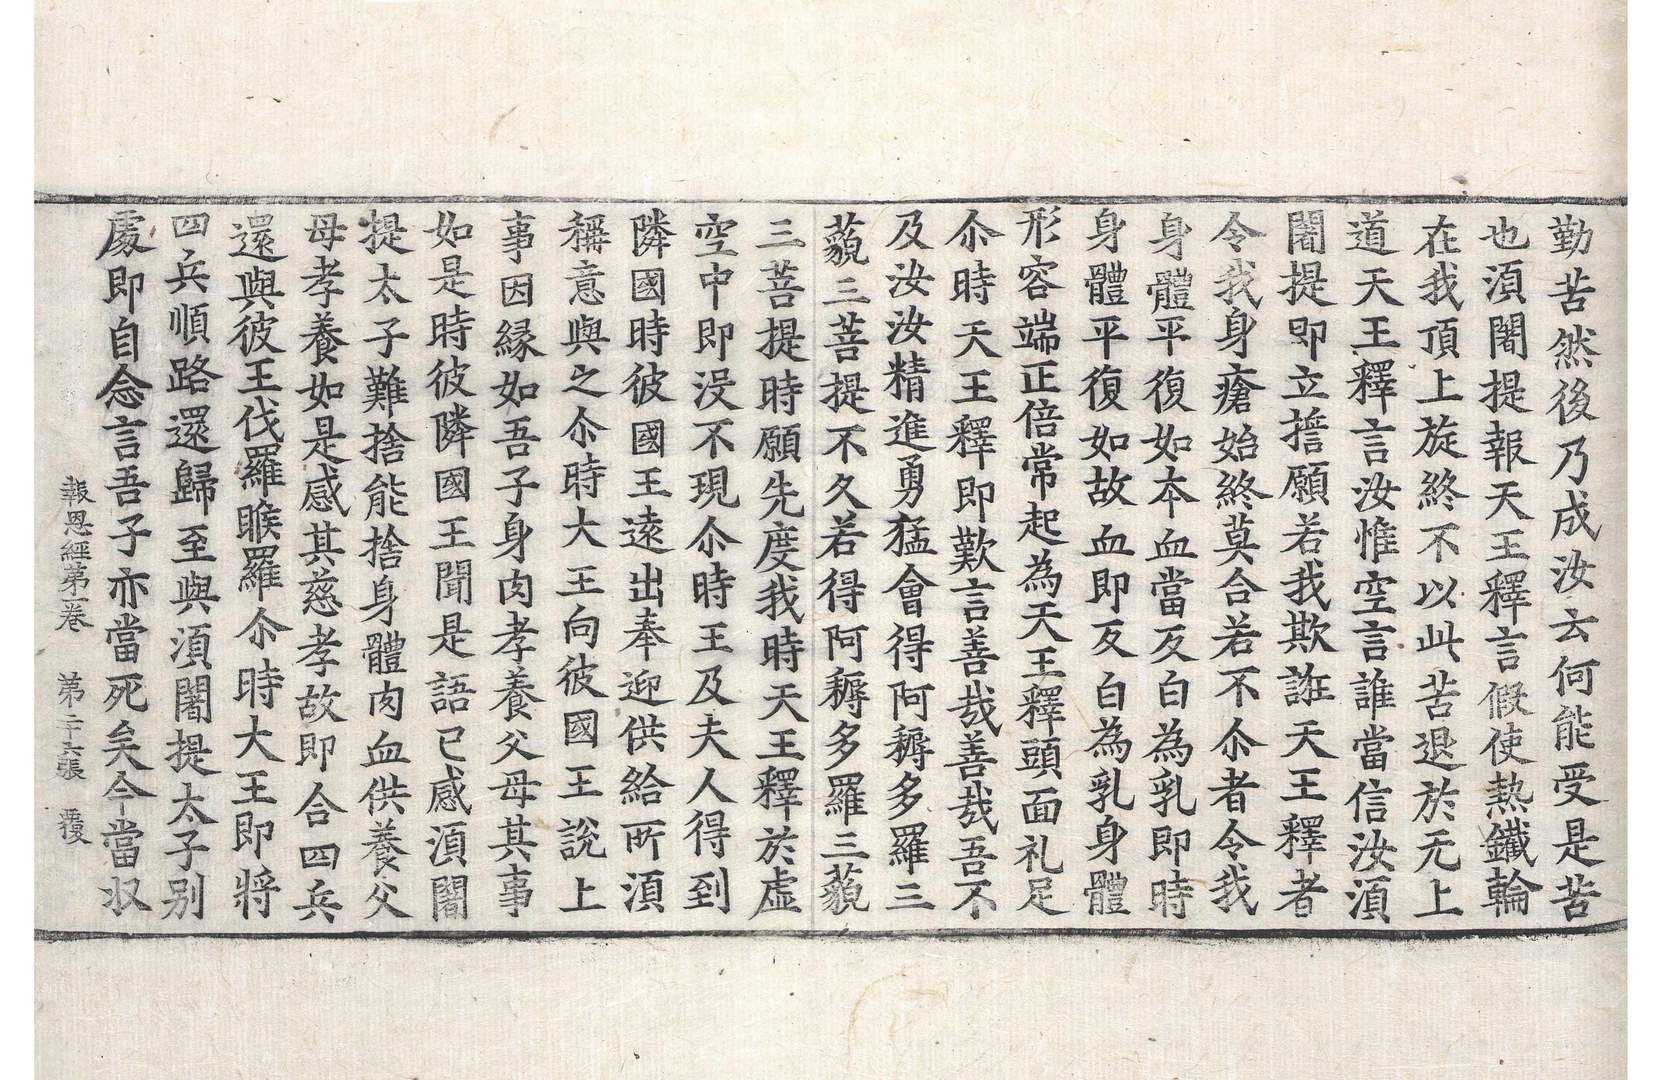 勤苦然後乃成汝云何能受是苦
也湏闍提報天王釋言假使熱鐵輪
在我頂上旋終不以此苦退於无上
道天王釋言汝惟空言誰當信汝湏
闍提即立誓願若我欺誑天王釋者
令我身瘡始終莫合若不尒者令我
身體平復如本血當反白為乳即時
身體平復如故血即反白為乳身體
形容端正倍常起為天王釋頭面礼足
尒時天王釋即歎言善哉善哉吾不
及汝汝精進勇猛會得阿耨多羅三
藐三菩提不久若得阿耨多羅三藐
三菩提時願先度我時天王釋於虛
空中即没不現尒時王及夫人得到
隣國時彼國王遠出奉迎供給所湏
稱意與之尒時大王向彼國王說上
事因緣如吾子身肉孝養父母其事
如是時彼隣國王聞是語已感湏闍
提太子難捨能捨身體肉血供養父
母孝養如是感其慈孝故即合四兵
還與彼王伐羅睺羅尒時大王即將
四兵順路還歸至與湏闍提太子別
處即自念言吾子亦當死矣今當収
報恩經第一卷　第二十六張　覆